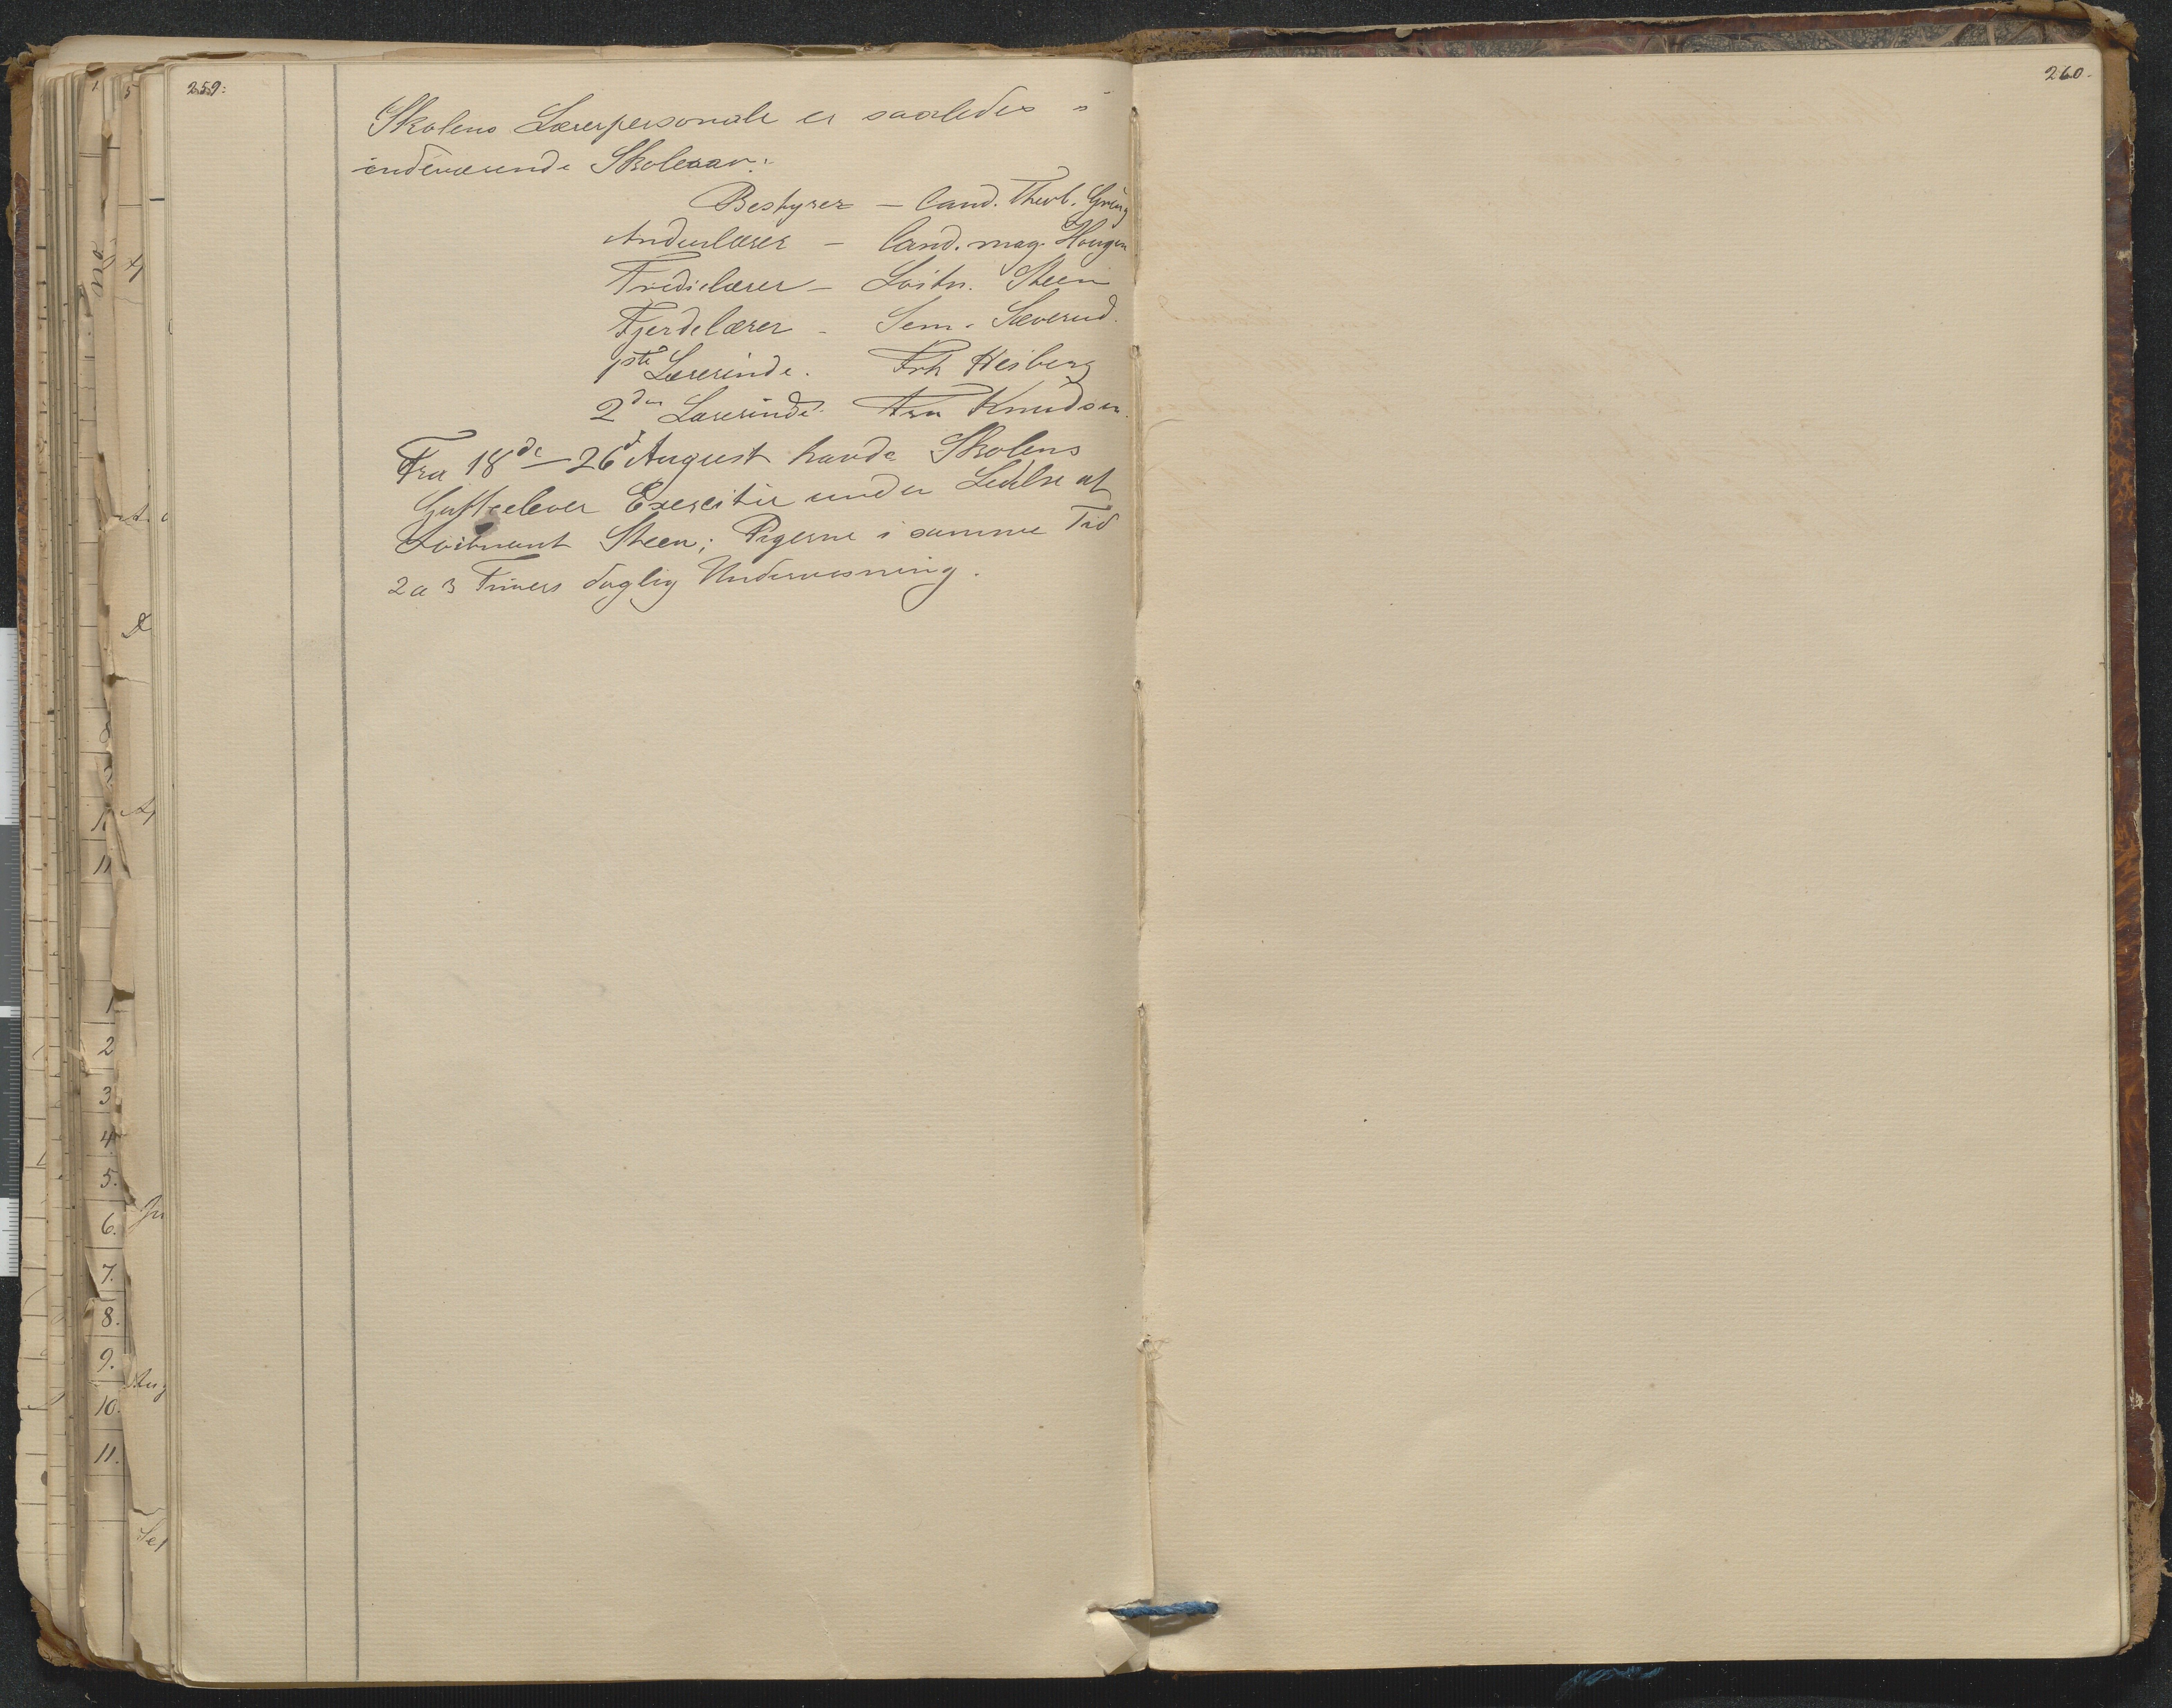 259:
Skolens Lærerpersonale er saaledes i
indeværende Skoleaar:
Bestyrer – Cand. Theol. Gring
Andenlærer – Cand. mag. Hougen
Tredielærer – Løitn. Steen
Fjerdelærer – Sem. Sæverud.
1ste Lærerinde. Frk Heiberg
2den Lærerinde. Fru Knudsen.
Fra 18de – 26de August havde Skolens
Gutteelever Exersitie under Ledelse af
Løitnant Steen; Pigerne i samme Tid
2 a 3 Timers daglig Undervisning.
260.
1
2
3
4
5.
6.
7.
8.
9.
10.
11.